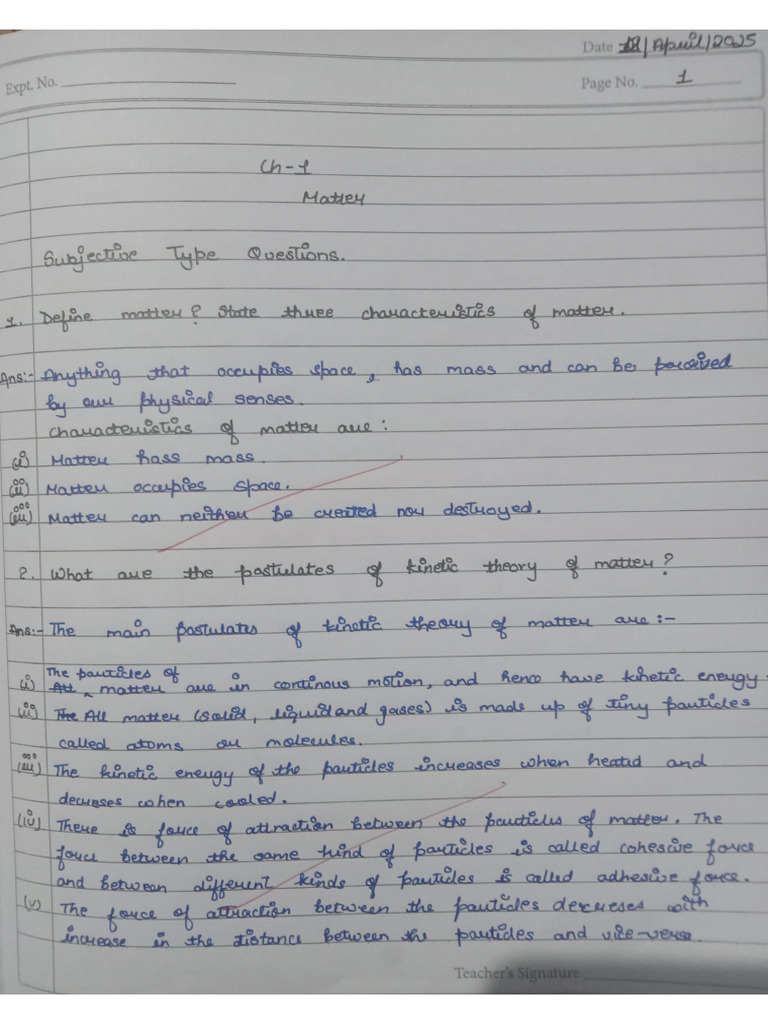 Date 12/April/2025
Expt. No.
Page No. 1
Ch-1
Matter
Subjective Type Questions.
1. Define matter? State three characteristics of matter.
Ans:- Anything that occupies space, has mass and can be perceived
by our physical senses.
Characteristics of matter are:
(i) Matter hass mass.
(ii) Matter occupies space.
(iii) Matter can neither be created nor destroyed.
2. What are the postulates of kinetic theory of matter?
Ans:- The main postulates of kinetic theory of matter are:-
The particles of
(i) All ^ matter are in continous motion, and hence have kinetic energy.
(ii) The All matter (solid, liquid and gases) is made up of tiny particles
called atoms or molecules.
(iii) The kinetic energy of the particles increases when heated and
decreses when cooled.
(iv) There is force of attraction between the particles of matter. The
force between the same kind of particles is called cohesive force
and between different kinds of particles is called adhesive force.
(v) The force of attraction between the particles decreses with
increase in the distance between the particles and vice-versa.
Teacher's Signature